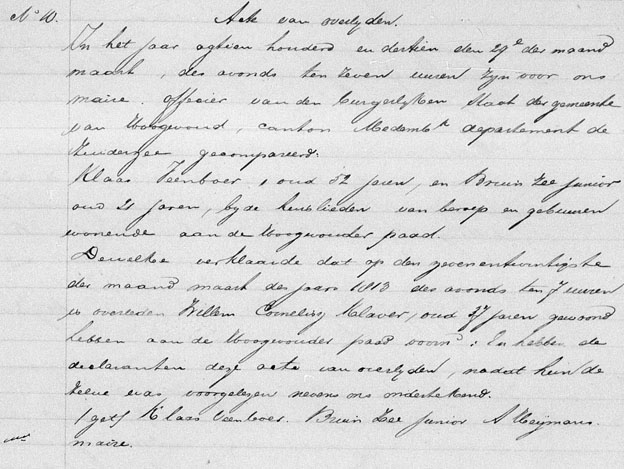 No 10. Acte van overlyden.
In het jaar agtien honderd en dertien den 29e der maand
maart, des avonds ten zeven uuren zyn voor ons
maire. Officier van den burgerlyken Staat der gemeente
van Hoogwoud, canton Medembk departement de
Zuiderzee gecompareerd:
Klaas Veenboer, oud 52 jaren, en Bruin Zee junior
oud 21 jaren, byde huislieden van beroep en gebuuren
wonende aan de Hoogwouder paad.
Dewelke verklaarde dat op den zevenentwintigste
der maand maart des jaars 1813 des avonds ten 7 uuren
is overleden Willem Cornelisz Klaver, oud 37 jaren gewoond
hebben aan de Hoogwouder paad voornd: En hebben de
declaranten deze acte van overlyden, nadat hun de
zelve was voorgelezen nevens ons onderteekend.
(get) Klaas Veenboer. Bruin Zee junior A Meymans.
maire.